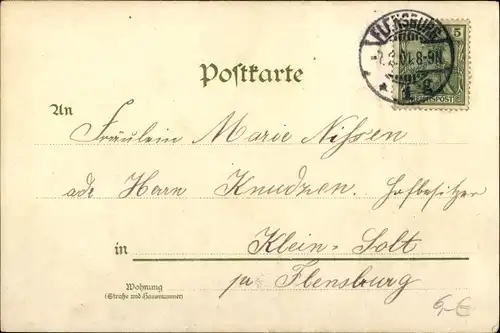 FLENSBURG
5
7.2.01.8-9N
REICHSPOST
Postkarte
An
Fräulein Marie Nissen
adr Herrn Knudzen. Hofbesitzer
in Klein-Solt
pr Flensburg
Wohnung
(Straße und Hausnummer)